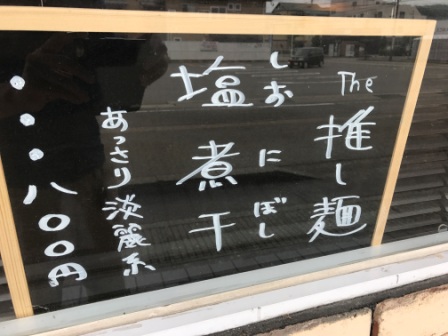 The 推し麺
しお にぼし
塩煮干
あっさり淡麗系
・・・八〇〇円